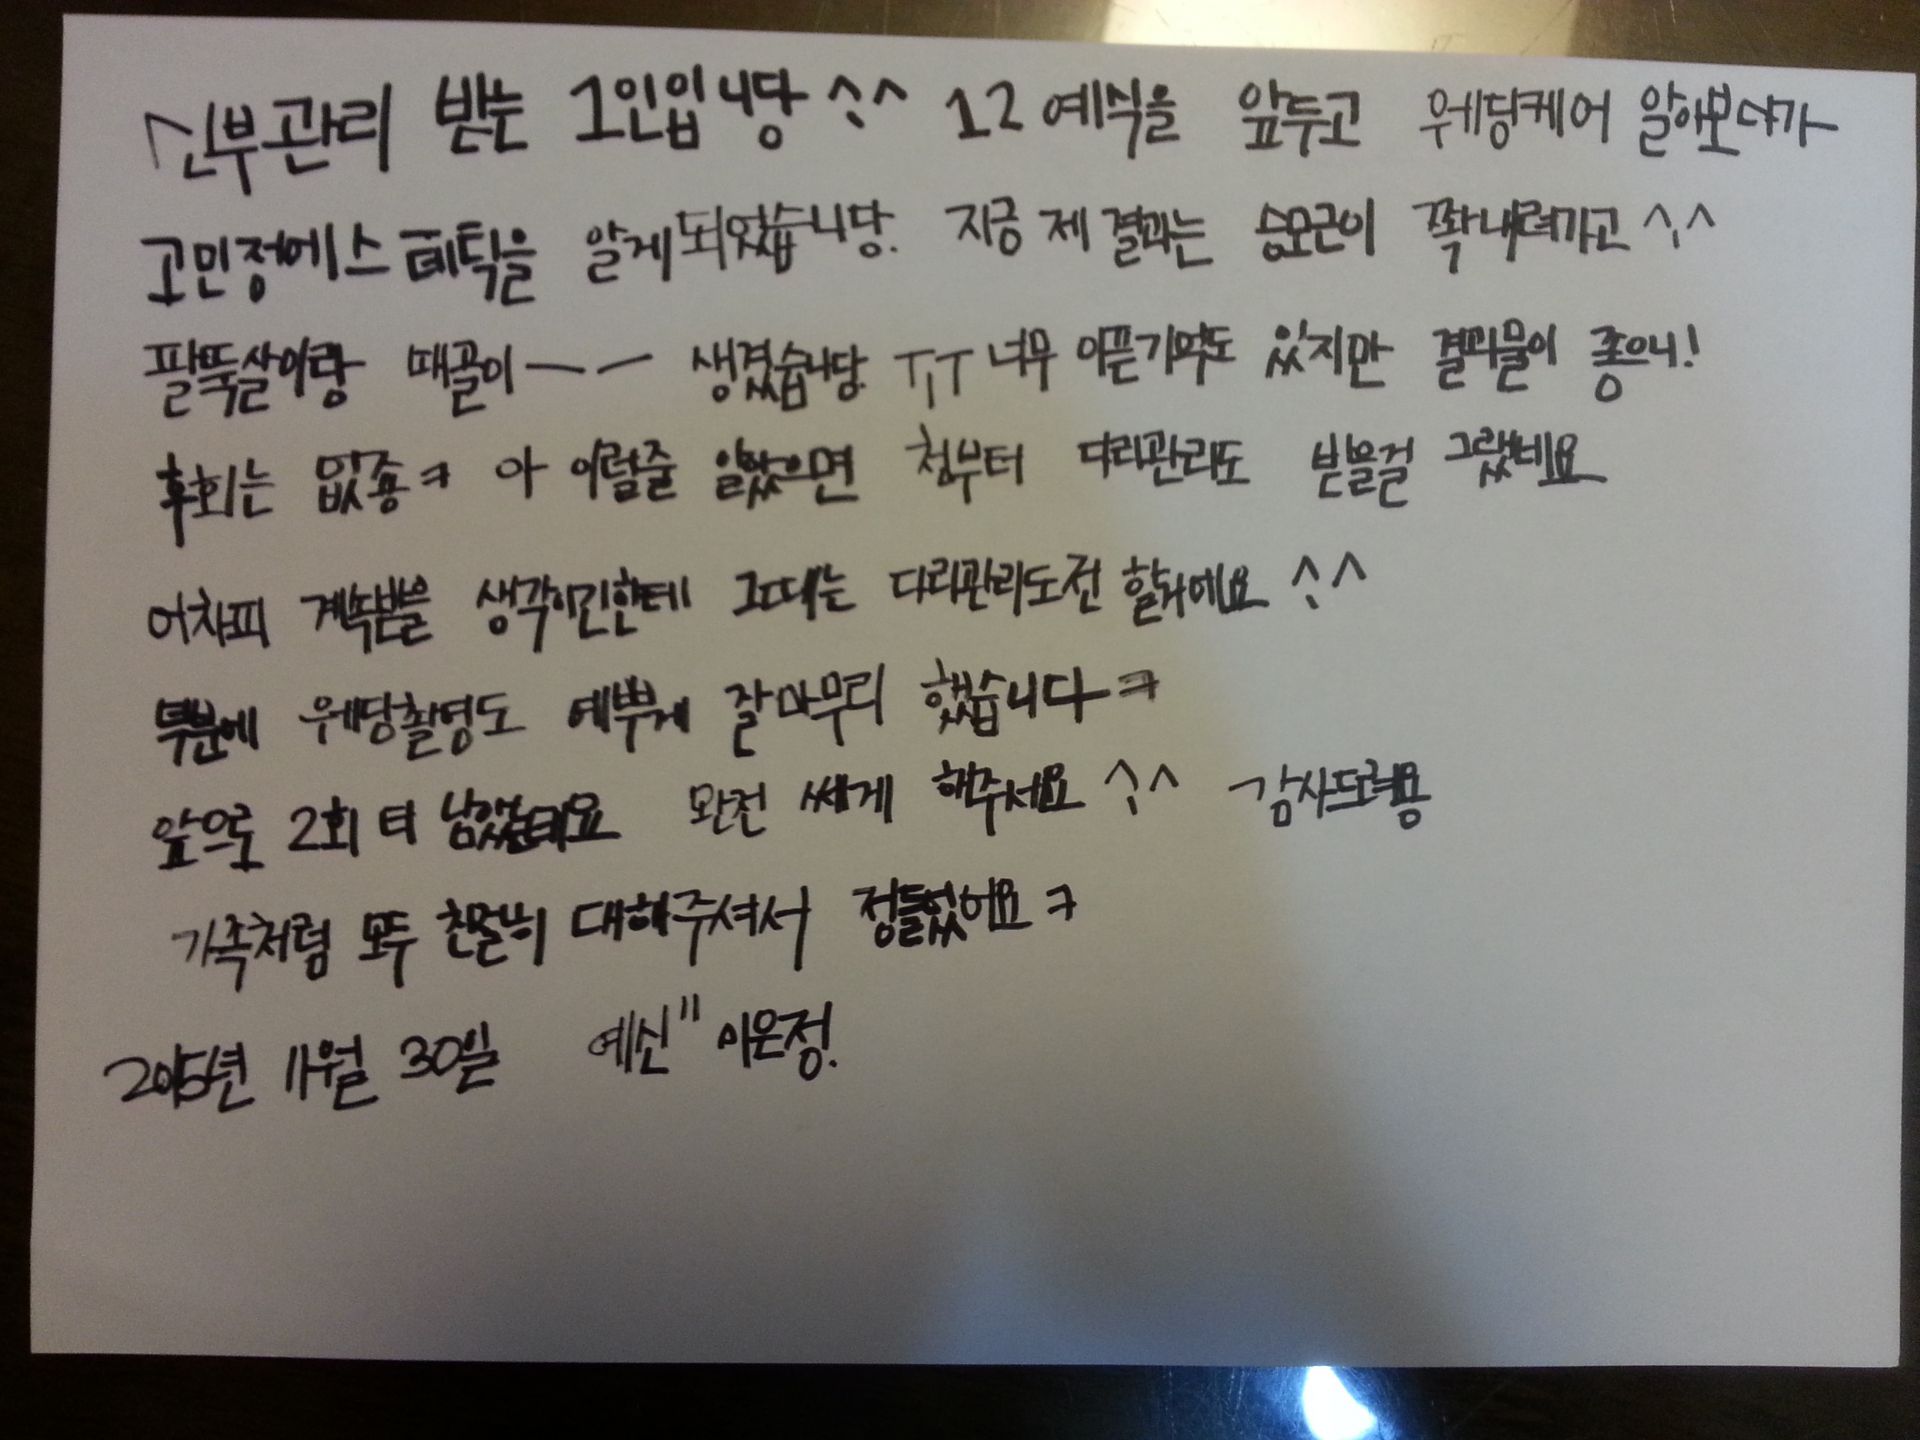 신부관리 받는 1인입니당 ^^ 12 예식을 앞두고 웨딩케어 알아보다가
고민정에스테틱을 알게되었습니당. 지금 제 결과는 승모근이 쫙내려가고 ^^
팔뚝살이랑 때골이ㅡㅡ 생겼습니당 ㅜㅜ 너무 아픈기억도 있지만 결과물이 좋으니!
후회는 없죵ㅋ 아 이럴줄 알았으면 첨부터 다리관리도 받을걸 그랬네요
어차피 계속받을 생각이긴한데 그때는 다리관리도전 할거에요 ^^
덕분에 웨딩촬영도 예쁘게 잘마무리 했습니다ㅋ
앞으로 2회 더 남았는데요 완전 쎄게 해주세요 ^^ 감사드려용
가족처럼 모두 친절히 대해주셔서 정들었어요ㅋ
2015년 11월 30일 예신" 이은정.